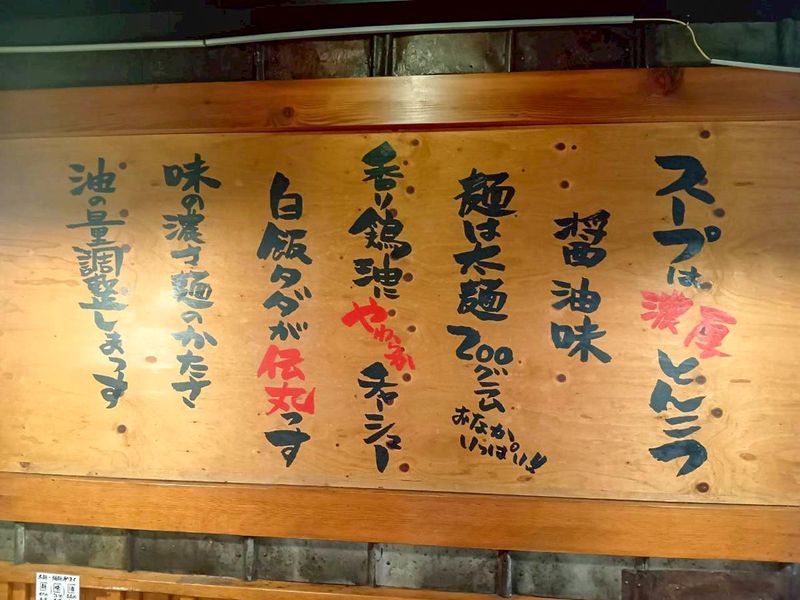 スープは濃厚とんこつ
醤油味
麺は太麺200グラム
おなか
いっぱい!!
香り鶏油にやわらかチャーシュー
白飯タダが伝丸っす
味の濃さ麺のかたさ
油の量調整しまっす